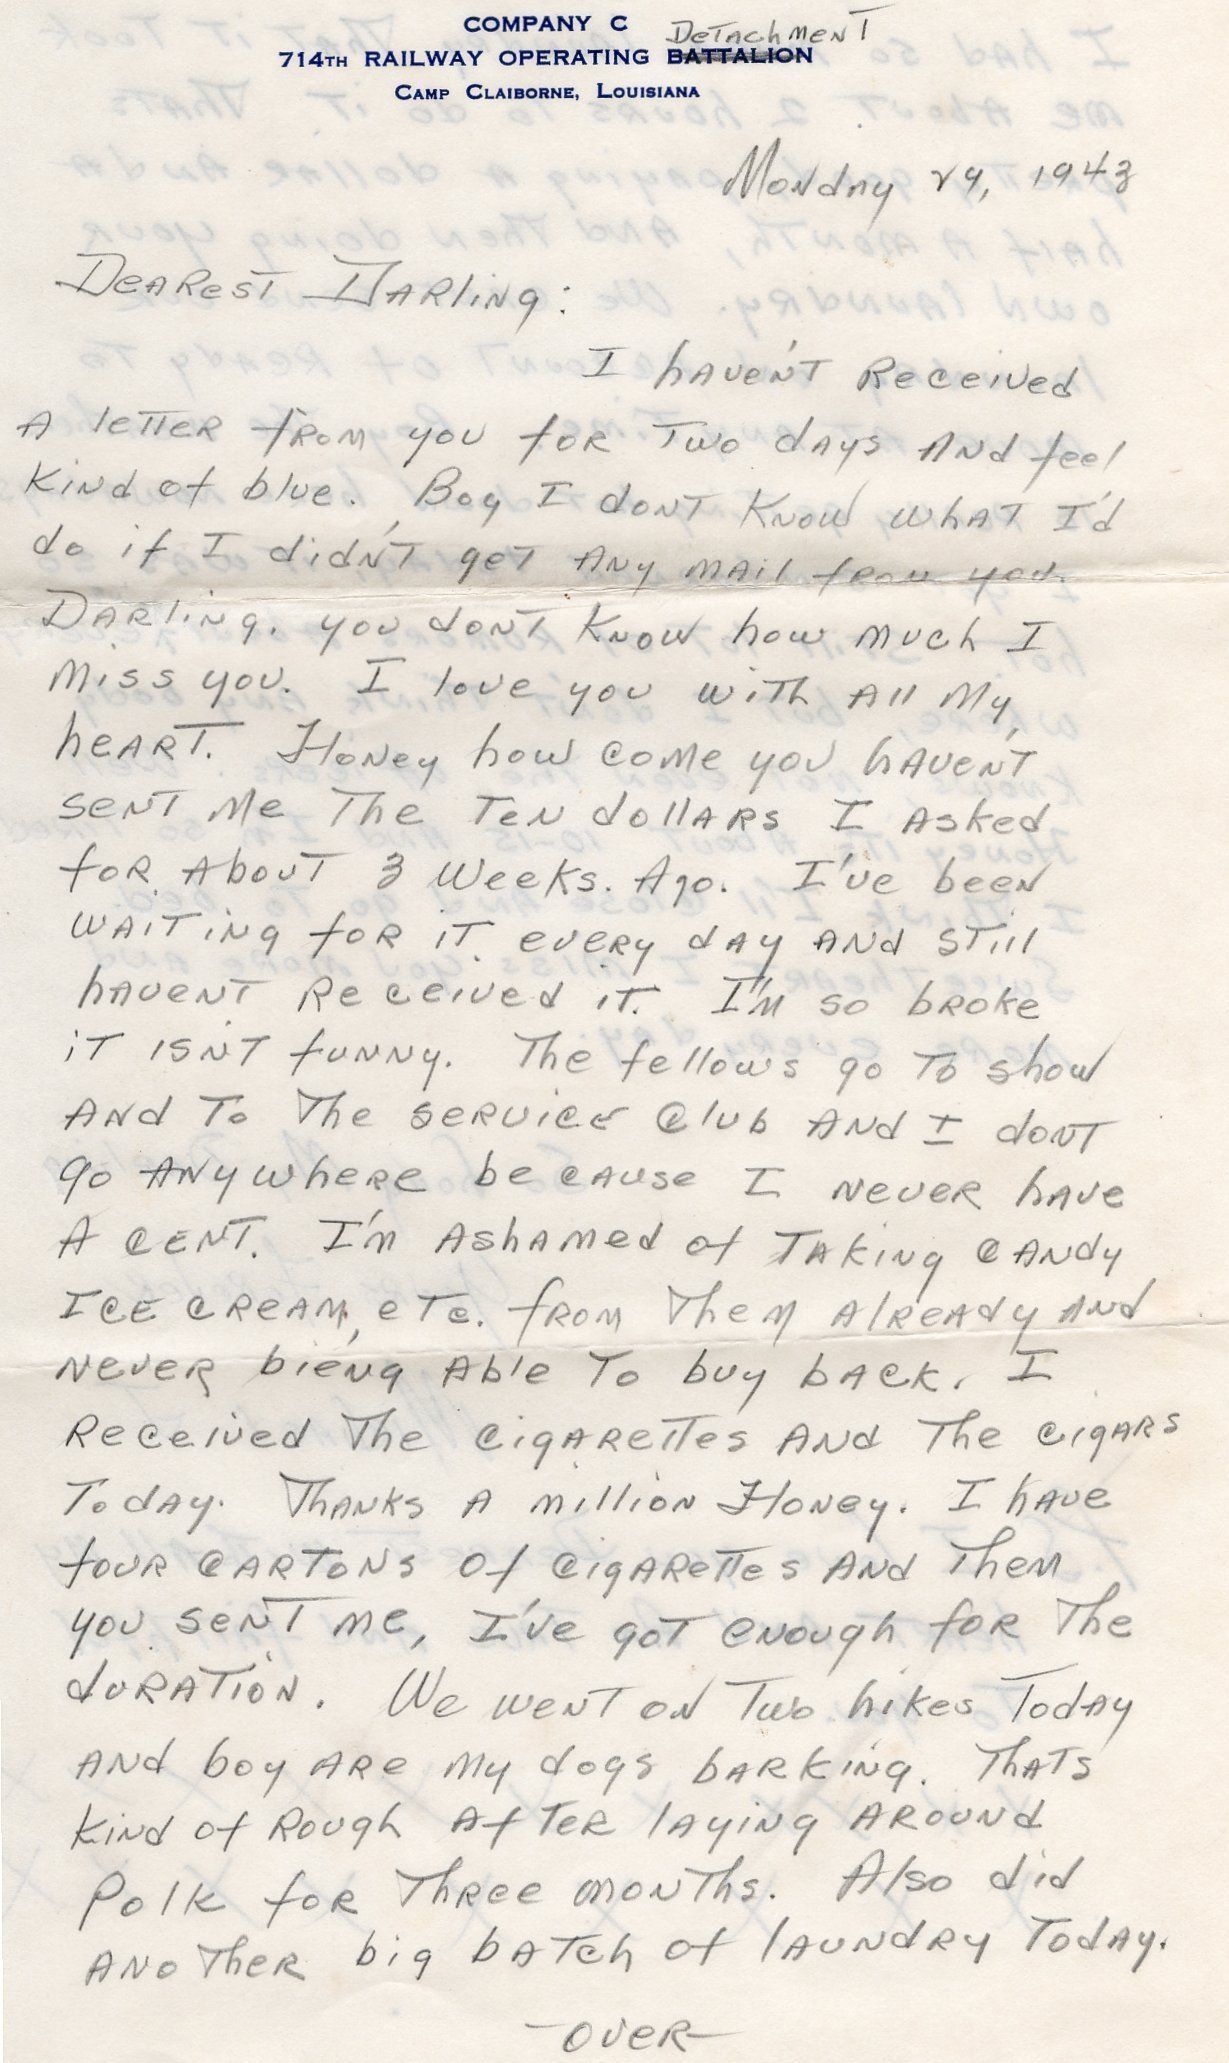 COMPANY C
Detachment
714TH RAILWAY OPERATING BATTALION
CAMP CLAIBORNE, LOUISIANA
Monday 29, 1943
Dearest Darling:
I haven't received
a letter from you for two days and feel
kind of blue. Boy I dont know what I'd
do if I didn't get any mail from you
Darling. you dont know how much I
miss you. I love you with all my
heart. Honey how come you haven't
sent me the ten dollars I asked
for about 3 weeks. ago. I've been
waiting for it every day and still
havent received it. I'm so broke
it isnt funny. The fellows go to show
and to the service club and I dont
go anywhere because I never have
a cent. I'm ashamed of taking candy
ice cream, etc. from them already and
never bieng able to buy back. I
received the cigarettes and the cigars
today. Thanks a million Honey. I have
four cartons of cigarettes and them
you sent me, I've got enough for the
duration. We went on two hikes today
and boy are my dogs barking. Thats
kind of rough after laying around
Polk for three months. Also did
another big batch of laundry today.
-over-